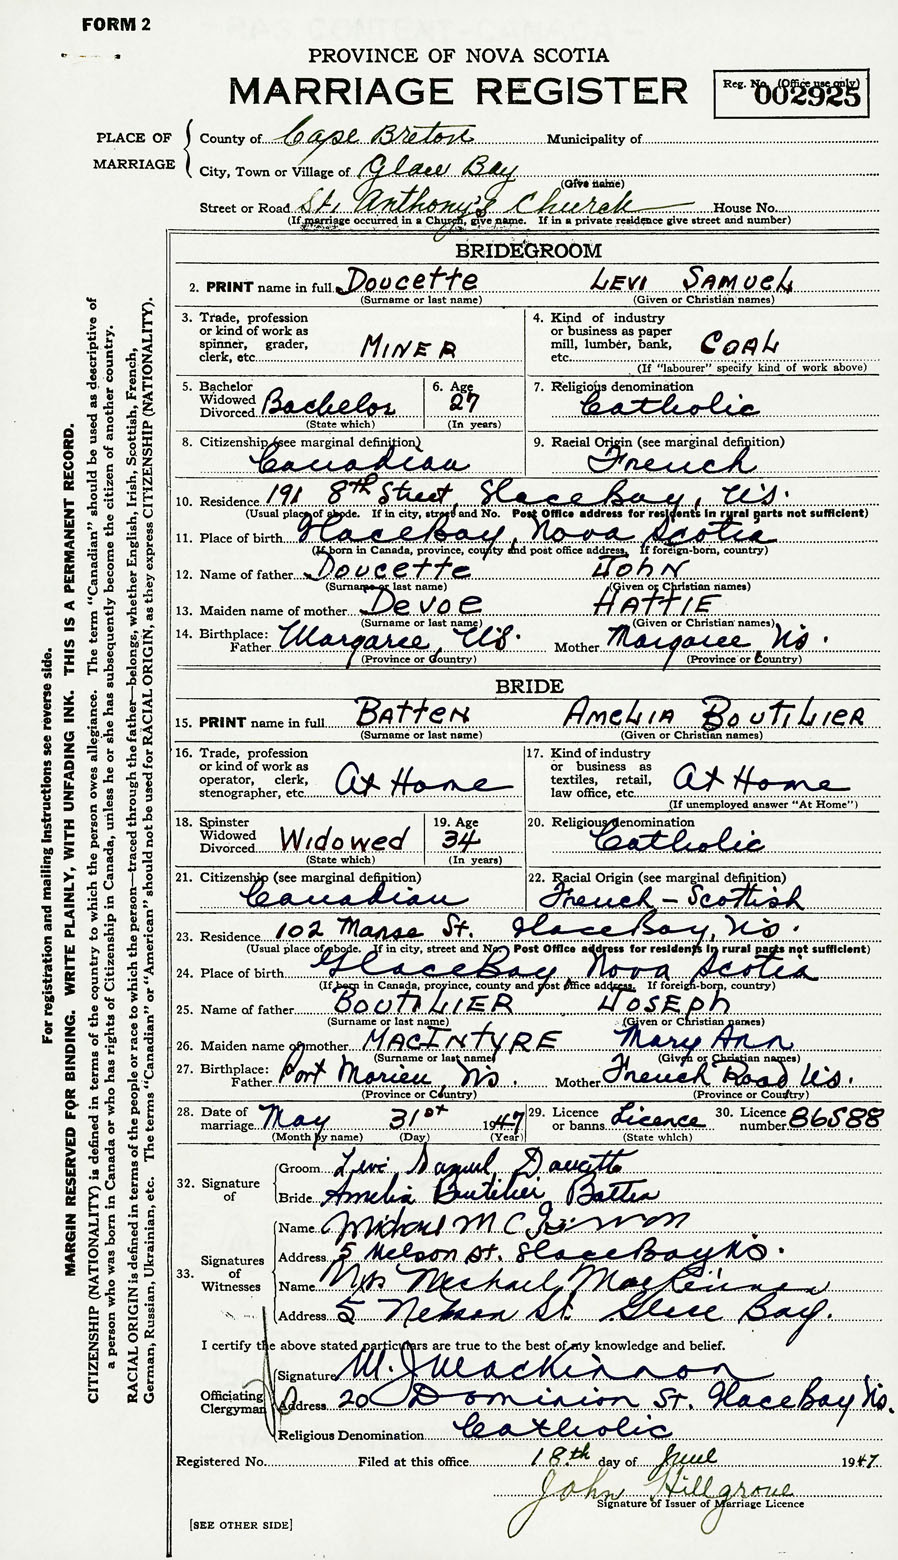 FORM 2
PROVINCE OF NOVA SCOTIA
MARRIAGE REGISTER
Reg. No. (Office use only)
002925
PLACE OF MARRIAGE
County of Cape Breton Municipality of
City, Town or Village of Glace Bay
(Give name)
Street or Road St. Anthony's Church House No.
(If marriage occurred in a Church, give name. If in a private residence give street and number)
BRIDEGROOM
2. PRINT name in full Doucette Levi Samuel
(Surname or last name) (Given or Christian names)
3. Trade, profession or kind of work as spinner, grader, clerk, etc. Miner
4. Kind of industry or business as paper mill, lumber, bank, etc. Coal
(If "labourer" specify kind of work above)
5. Bachelor Widowed Divorced Bachelor
(State which)
6. Age 27
(In years)
7. Religious denomination Catholic
8. Citizenship (see marginal definition) Canadian
9. Racial Origin (see marginal definition) French
10. Residence 191 8th Street, Glace Bay, N.S.
(Usual place of abode. If in city, street and No. Post Office address for residents in rural parts not sufficient)
11. Place of birth Glace Bay, Nova Scotia
(If born in Canada, province, county and post office address. If foreign-born, country)
12. Name of father Doucette John
(Surname or last name) (Given or Christian names)
13. Maiden name of mother Devoe Hattie
(Surname or last name) (Given or Christian names)
14. Birthplace: Father Margaree, N.S. Mother Margaree N.S.
(Province or Country) (Province or Country)
BRIDE
15. PRINT name in full Batten Amelia Boutilier
(Surname or last name) (Given or Christian names)
16. Trade, profession or kind of work as operator, clerk, stenographer, etc. At Home
17. Kind of industry or business as textiles, retail, law office, etc. At Home
(If unemployed answer "At Home")
18. Spinster Widowed Divorced Widowed
(State which)
19. Age 34
(In years)
20. Religious denomination Catholic
21. Citizenship (see marginal definition) Canadian
22. Racial Origin (see marginal definition) French - Scottish
23. Residence 102 Manse St. Glace Bay, N.S.
(Usual place of abode. If in city, street and No. Post Office address for residents in rural parts not sufficient)
24. Place of birth Glace Bay Nova Scotia
(If born in Canada, province, county and post office address. If foreign-born, country)
25. Name of father Boutilier Joseph
(Surname or last name) (Given or Christian names)
26. Maiden name of mother MacIntyre Mary Ann
(Surname or last name) (Given or Christian names)
27. Birthplace: Father Port Morien, N.S. Mother French Road N.S.
(Province or Country) (Province or Country)
28. Date of marriage May 31st 1947
(Month by name) (Day) (Year)
29. Licence or banns Licence
(State which)
30. Licence number 86588
32. Signature of
Groom Levi Samuel Doucette
Bride Amelia Boutilier Batten
33. Signatures of Witnesses
Name Michael
Address 5 Nelson St. Glace Bay N.S.
Name Mrs Michael MacKinnon
Address 5 Nelson St. Glace Bay.
I certify the above stated particulars are true to the best of my knowledge and belief.
Officiating Clergyman
Signature M. J. MacKinnon
Address 20 Dominion St. Glace Bay N.S.
Religious Denomination Catholic
Registered No. Filed at this office 18th day of June 1947
John Hillgrove
Signature of Issuer of Marriage Licence
[SEE OTHER SIDE]
For registration and mailing instructions see reverse side.
MARGIN RESERVED FOR BINDING. WRITE PLAINLY, WITH UNFADING INK. THIS IS A PERMANENT RECORD.
CITIZENSHIP (NATIONALITY) is defined in terms of the country to which the person owes allegiance. The term "Canadian" should be used as descriptive of
a person who was born in Canada or who has rights of Citizenship in Canada, unless he or she has subsequently become the citizen of another country.
RACIAL ORIGIN is defined in terms of the people or race to which the person—traced through the father—belongs, whether English, Irish, Scottish, French,
German, Russian, Ukrainian, etc. The terms "Canadian" or "American" should not be used for RACIAL ORIGIN, as they express CITIZENSHIP (NATIONALITY).